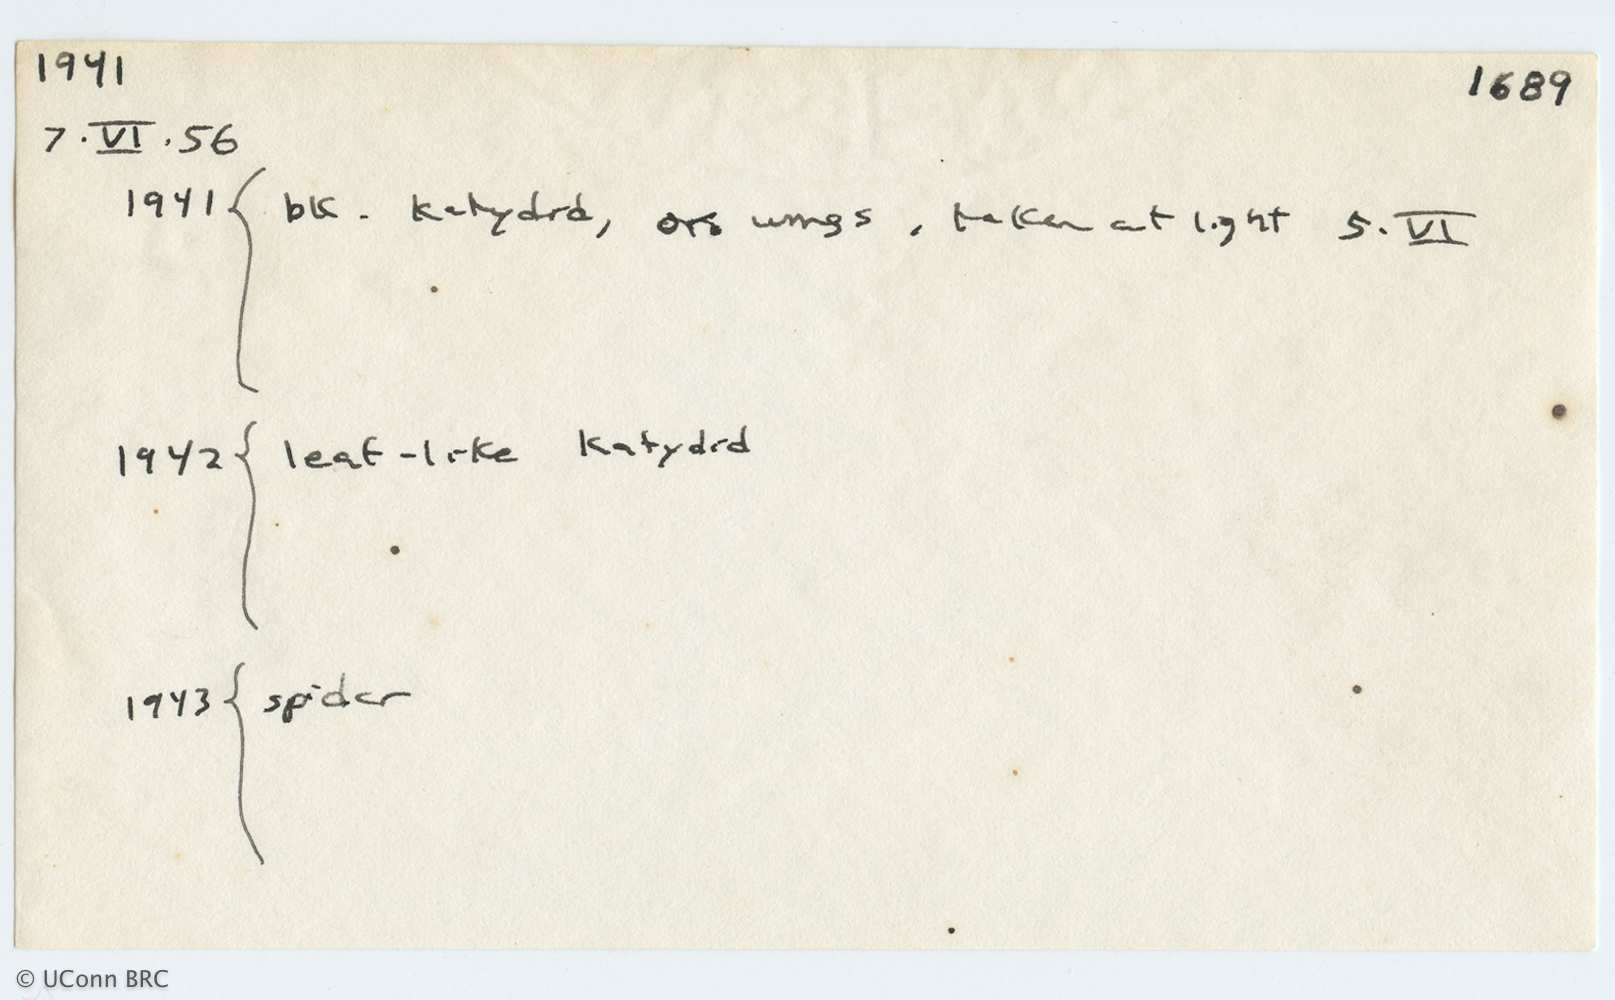 1941 1689
7·VI·56
1941 { bk. Katydid, ors wings, taken at light 5·VI
1942 { leaf-like Katydid
1943 { spider
© UConn BRC